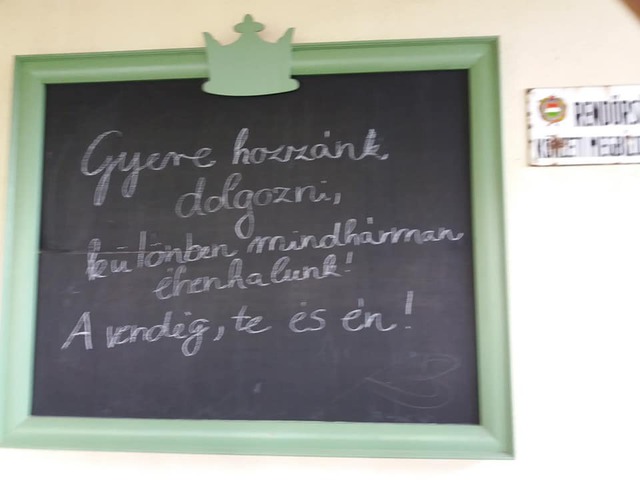 Gyere hozzánk,
dolgozni,
különben mindhárman
éhenhalunk!
A vendég, te és én!
RENDŐRSÉ
KÖRZETI MEGBÍZ